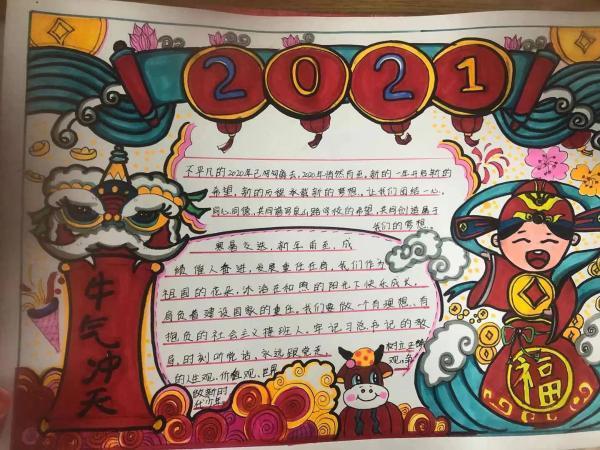 2021
不平凡的2020年已匆匆离去,2021年悄然而至,新的一年开启新的
希望,新的历程承载新的梦想,让我们团结一心,
同心同德,共同谱写泉山路学校的希望,共同创造属于
我们的梦想.
寒暑交迭,新年甫至,成
绩催人奋进,发展重任在肩,我们作为
祖国的花朵,沐浴在和煦的阳光下快乐成长,
肩负着建设国家的重任,我们要做一个有理想、有
抱负的社会主义接班人,牢记习总书记的教
导,时刻听党话,永远跟党走,
树立正确
的人生观、价值观、世界
观,争
做新时
代少年
牛气冲天
福